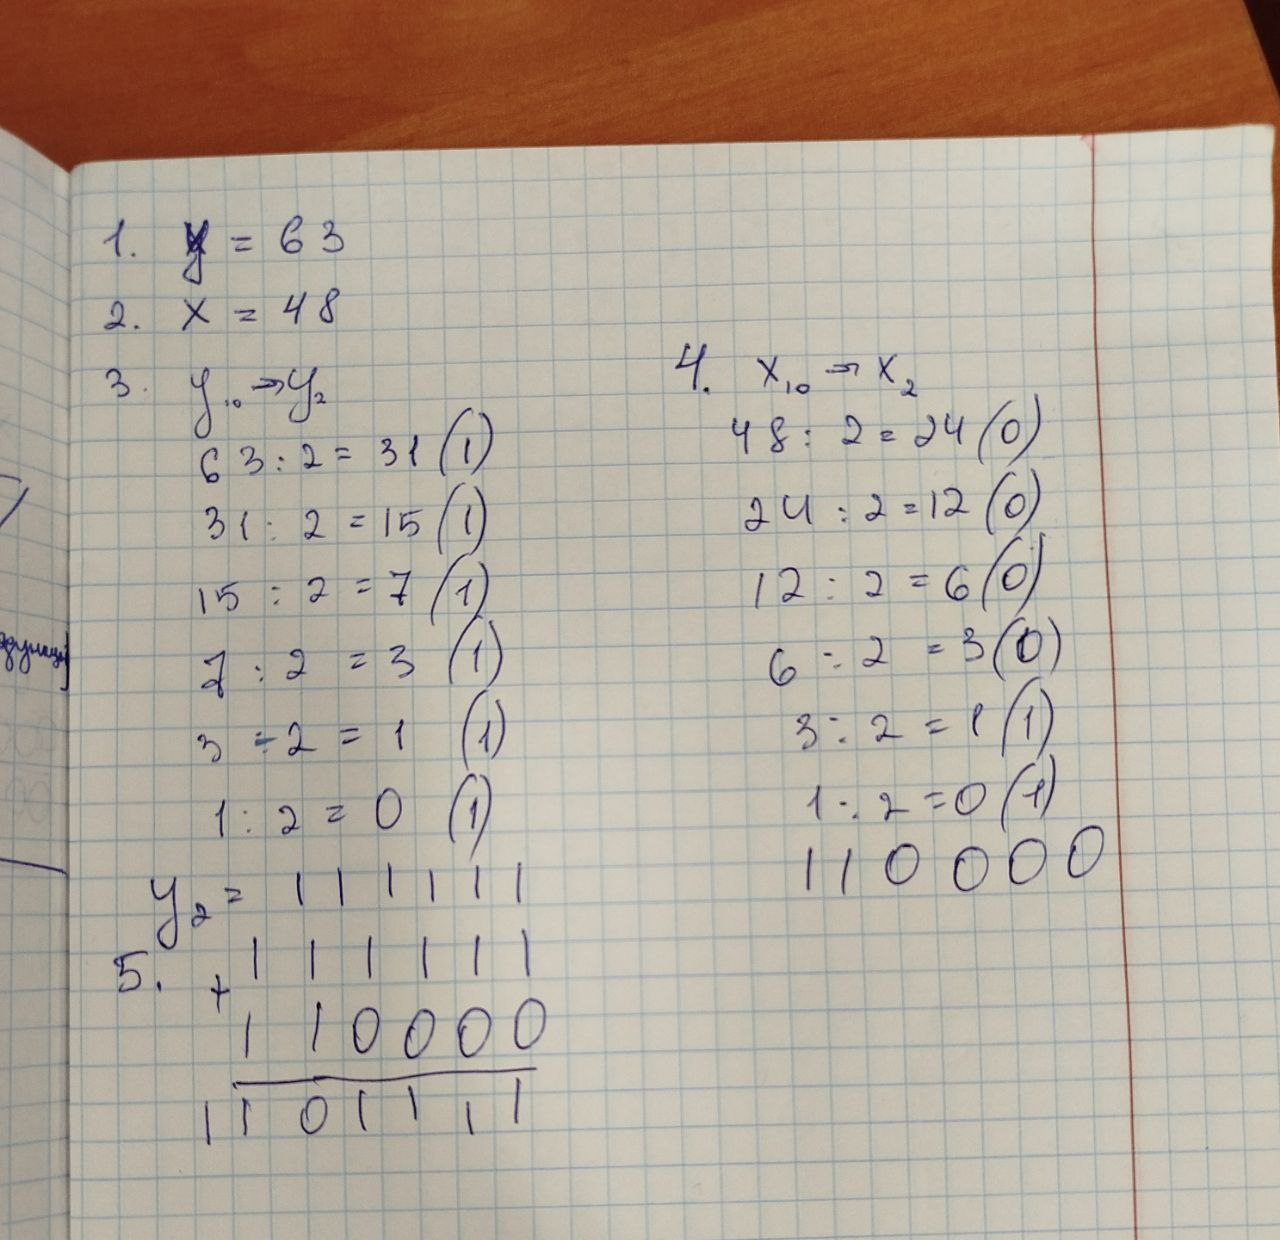 1. y = 63
2. x = 48
3. y₁₀ → y₂
63 : 2 = 31 (1)
31 : 2 = 15 (1)
15 : 2 = 7 (1)
7 : 2 = 3 (1)
3 : 2 = 1 (1)
1 : 2 = 0 (1)
y₂ = 111111
4. x₁₀ → x₂
48 : 2 = 24 (0)
24 : 2 = 12 (0)
12 : 2 = 6 (0)
6 : 2 = 3 (0)
3 : 2 = 1 (1)
1 : 2 = 0 (1)
110000
5. + 111111
110000
1101111